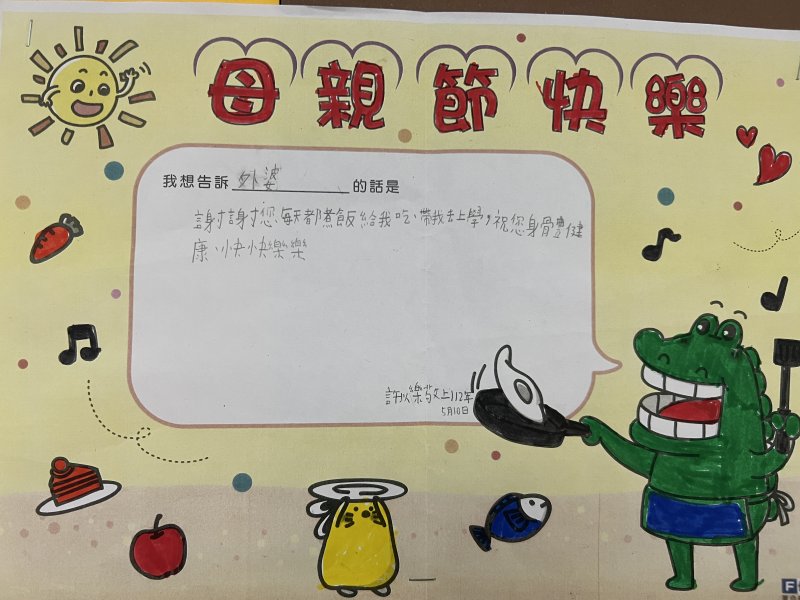 母親節快樂
我想告訴 外婆 的話是
謝謝您、每天都煮飯給我吃、帶我去上學，祝您身體健
康、快快樂樂
敬上112年
5月10日
F